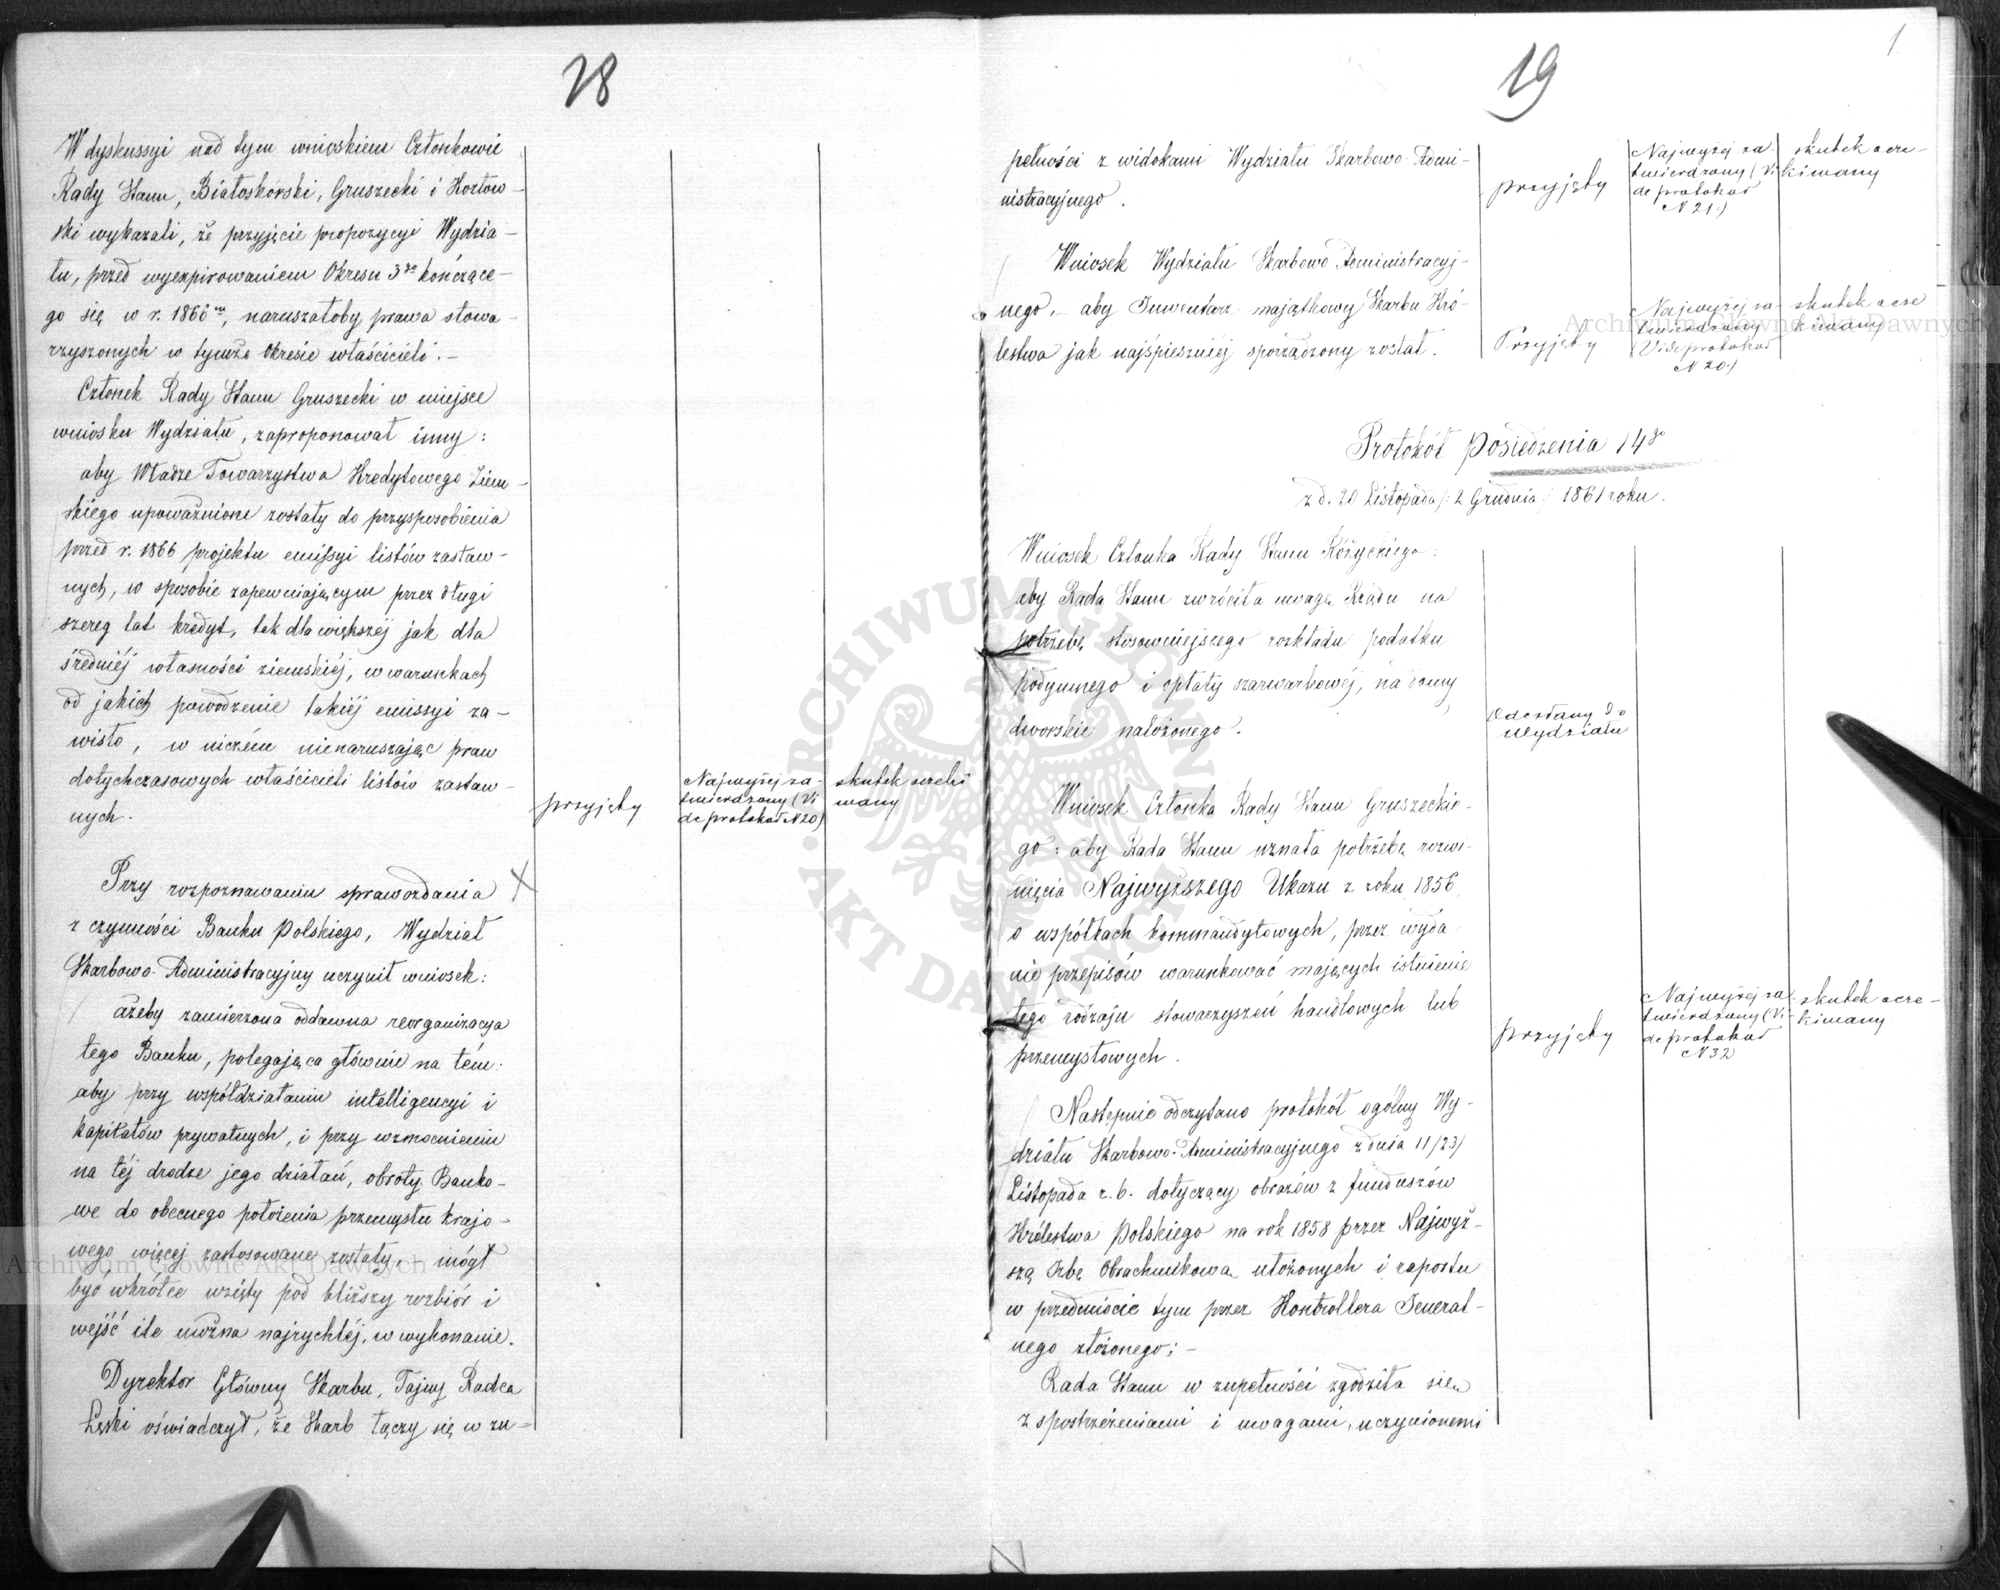 28
W dyskussyi nad tym wnioskiem Członkowie
Rady Stanu, Białoskórski, Gruszecki i Kozłow-
ski wykazali, że przyjęcie propozycyi Wydzia-
łu, przed wyexpirowaniem Okresu 3go kończące-
go się w r. 1866m, naruszałoby prawa stowa-
rzyszonych w tymże Okresie właścicieli.-
Członek Rady Stanu Gruszecki w miejsce
wniosku Wydziału, zaproponował inny:
aby Władze Towarzystwa Kredytowego Ziem-
skiego upoważnione zostały do przysposobienia
przed r. 1866 projektu emissyi listów zastaw-
nych, w sposobie zapewniającym przez długi
szereg lat kredyt, tak dla większéj jak dla
średniéj własności ziemskiéj, w warunkach
od jakich powodzenie takiéj emissyi za-
wisło, w niczém nienaruszając praw
dotychczasowych właścicieli listów zastaw-
nych.
przyjęty
Najwyżej za-
twierdzony (Vi
de protokuł N 20)
skutek oczeki
wany
Przy rozpoznawaniu sprawozdania
z czynności Banku Polskiego, Wydział
Skarbowo-Administracyjny uczynił wniosek:
ażeby zamierzona oddawna reorganizacya
tego Banku, polegająca głównie na tém:
aby przy współdziałaniu intelligencyi i
kapitałów prywatnych, i przy wzmocnieniu
na téj drodze jego działań, obroty Banko-
we do obecnego położenia przemysłu krajo-
wego więcej zastosowane zostały, mógł
być wkrótce wzięty pod bliższy rozbiór i
wejść ile można najrychléj, w wykonanie.
Dyrektor Główny Skarbu, Tajny Radca
Łęski oświadczył, że Skarb łączy się w zu-
19
1
pełności z widokami Wydziału Skarbowo-Admi-
nistracyjnego.
przyjęty
Najwyżej za-
twierdzony (Vi
de protokuł
N 21.)
skutek ocze-
kiwany
Wniosek Wydziału Skarbowo Administracyj-
nego, aby Inwentarz majątkowy Skarbu Kró-
lestwa jak najśpieszniéj sporządzony został.
Przyjęty
Najwyżej za-
twierdzony
(Vide protokuł
N 20.)
skutek ocze
kiwany
Protokół Posiedzenia 14go
z d. 20 Listopada /: 2 Grudnia :/ 1861 roku.
Wniosek Członka Rady Stanu Różyckiego:
aby Rada Stanu zwróciła uwagę Rządu na
potrzebę stosowniejszego rozkładu podatku
podymnego i opłaty szarwarkowéj, na domy
dworskie nałożonego.
Odesłany do
Wydziału
Wniosek Członka Rady Stanu Gruszeckie-
go: aby Rada Stanu uznała potrzebę rozwi-
nięcia Najwyższego Ukazu z roku 1856
o wspólkach kommandytowych, przez wyda-
nie przepisów warunkować mających istnienie
tego rodzaju stowarzyszeń handlowych lub
przemysłowych.
przyjęty
Najwyżej za-
twierdzony (Vi-
de protokuł
N 32)
skutek ocze-
kiwany
Następnie odczytano protokół ogólny Wy-
działu Skarbowo-Administracyjnego z dnia 11/23/
Listopada r. b. dotyczący obrazów z funduszów
Królestwa Polskiego na rok 1858 przez Najwyż-
szą Izbę Obrachunkową ułożonych i raportu
w przedmiocie tym przez Kontrollera Jeneral-
nego złożonego;-
Rada Stanu w zupełności zgodziła się
z spostrzeżeniami i uwagami, uczynionemi
Archiwum Główne Akt Dawnych
Archiwum Główne Akt Dawnych
ARCHIWUM GŁÓWNE AKT DAWNYCH